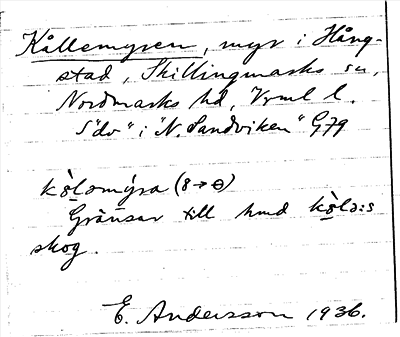 Kållemyren, myr i Hång-
stad, Skillingmarks sn,
Nordmarks hd, Vrml l.
S "do" i "N. Sandviken" G79
kòləmýra (8→ɵ)
Gränsar till hmd kòlə:s
skog.
E. Andersson 1936.